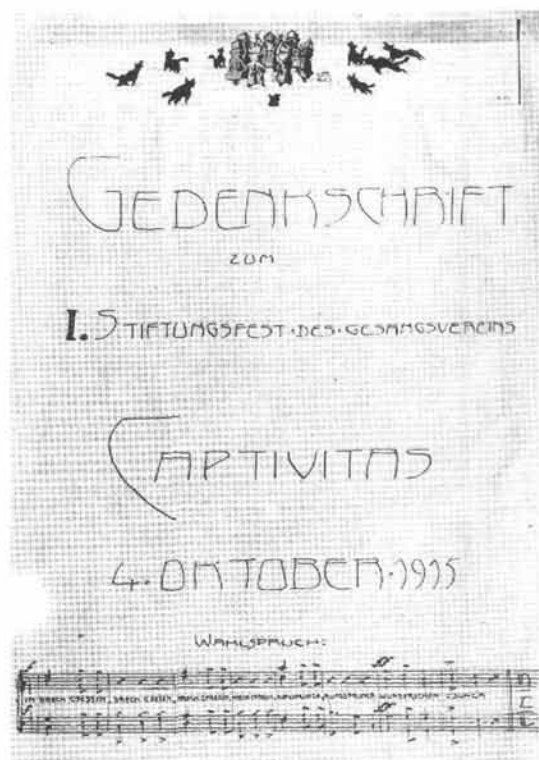 GEDENKSCHRIFT
ZUM
I. STIFTUNGSFEST·DES·GESANGSVEREINS
CAPTIVITAS
4. OKTOBER·1915
WAHLSPRUCH: